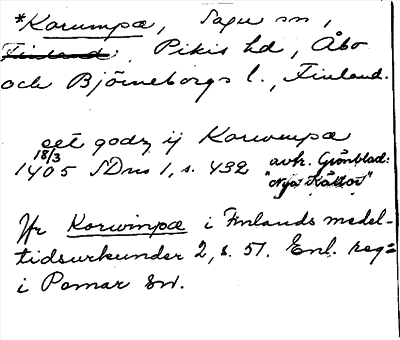 *Korumpæ, Sagu sn,
Finland. Pikis hd, Åbo
och Björneborgs l., Finland.
eet godz ij Korwmpæ
18/3
1405 SDns 1, s. 432 avkr. Grönblad:
"Nya Källor"
Jfr Korwimpæ i Finlands medel-
tidsurkunder 2, s. 51. Enl. reg=
i Pemar sn.